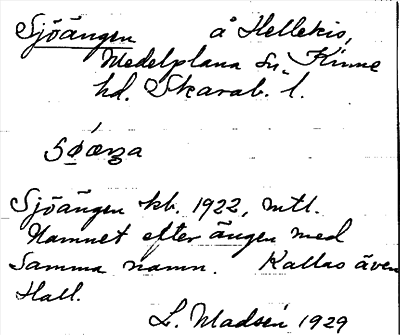 Sjöängen å Hellekis,
Medelplana sn, Kinne
hd. Skarab. l.
Sjöängen kb. 1922, mtl.
Namnet efter ängen med
samma namn. Kallas även
Hall.
L. Madsén 1929